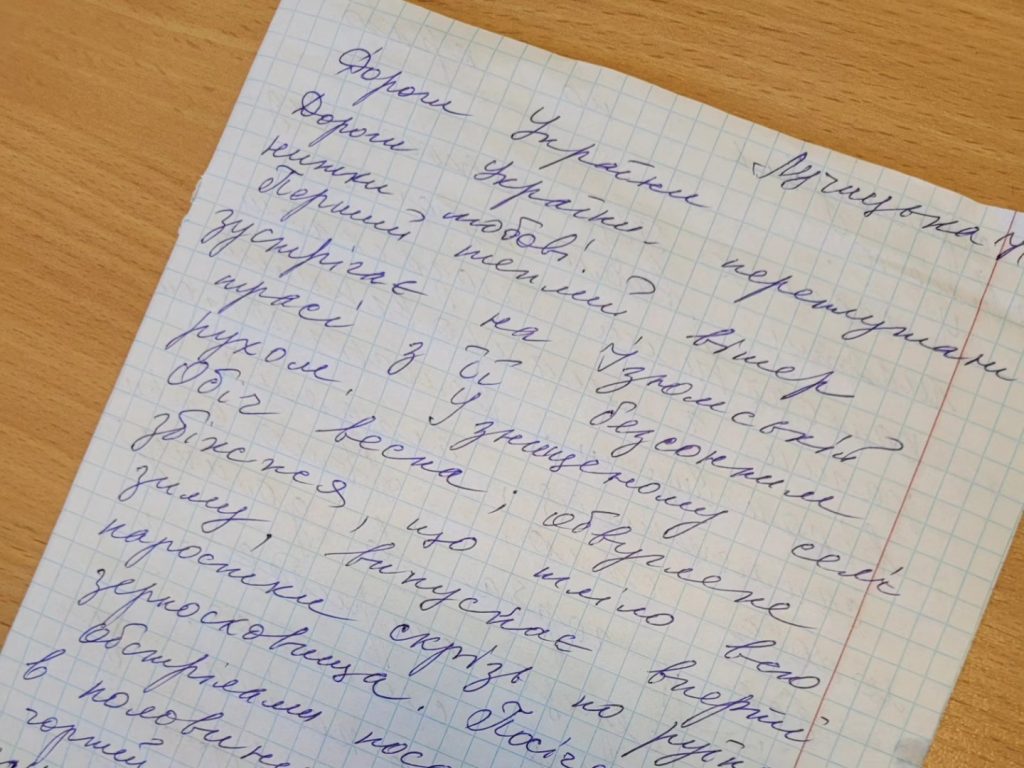 Дороги України Лучицька
Дороги України- переплутани
нитки любові.
Перший теплий вітер
зустрічає на Ізюмській
трасі з її безсонним
рухом. У знищеному селі
Обіч весна; обвуглене
збіжжя, що тліло всю
зиму, випускає вперті
паростки скрізь по руйн
зерносховища. Посіч
обстрілами пос
в половине